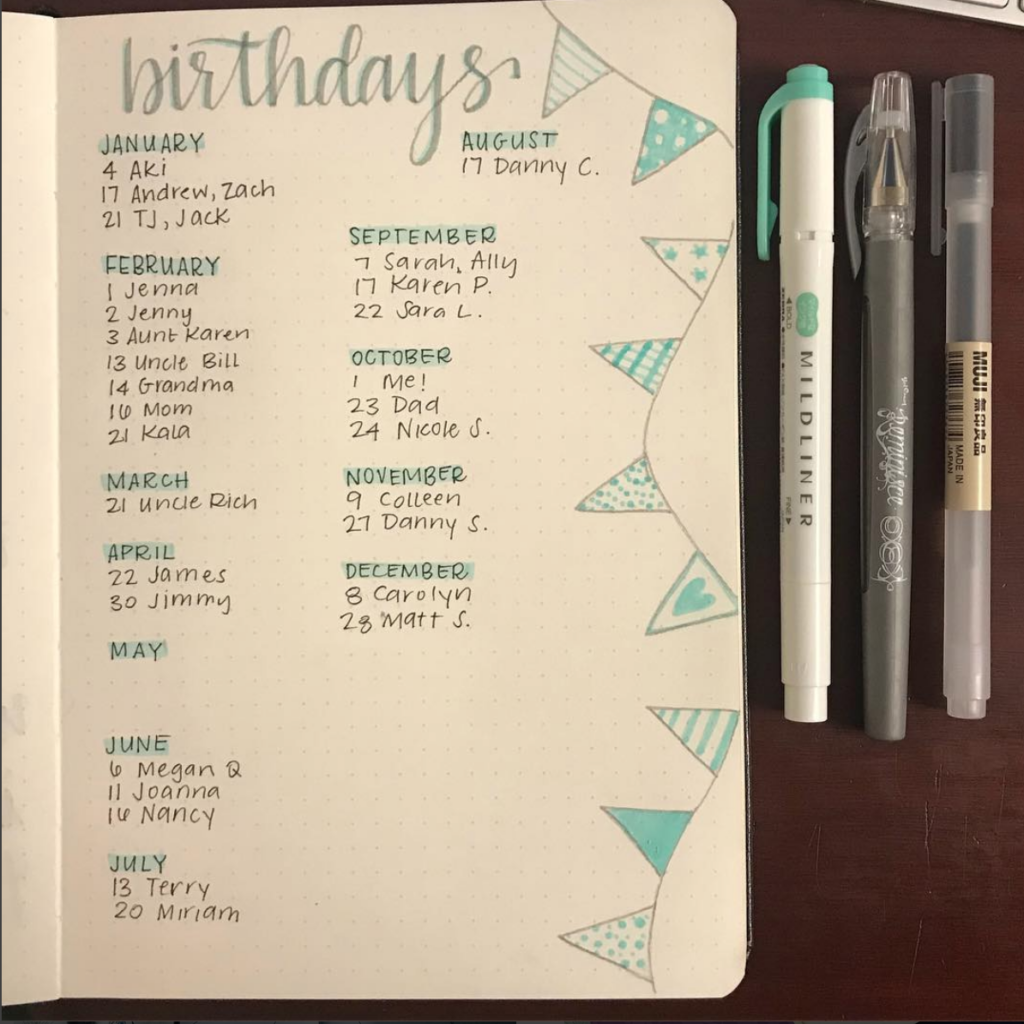 birthdays
JANUARY
4 Aki
17 Andrew, Zach
21 TJ, Jack
FEBRUARY
1 Jenna
2 Jenny
3 Aunt Karen
13 Uncle Bill
14 Grandma
16 Mom
21 Kala
MARCH
21 Uncle Rich
APRIL
22 James
30 Jimmy
MAY
JUNE
6 Megan Q
11 Joanna
16 Nancy
JULY
13 Terry
20 Miriam
AUGUST
17 Danny C.
SEPTEMBER
7 Sarah, Ally
17 Karen P.
22 Sara L.
OCTOBER
1 Me!
23 Dad
24 Nicole S.
NOVEMBER
9 Colleen
27 Danny S.
DECEMBER
8 Carolyn
28 Matt S.
◀BOLD
MILDLINER
FINE▶
reminisce
MUJI 無印良品
MADE IN
JAPAN